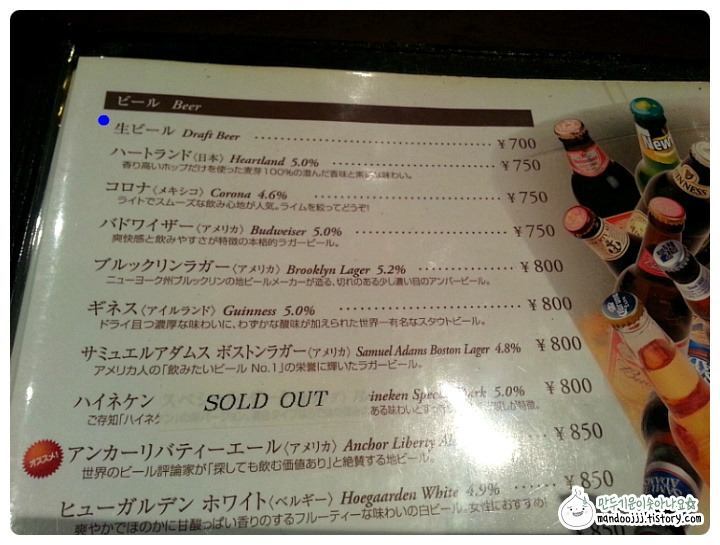 ビール Beer
生ビール Draft Beer ¥700
ハートランド〈日本〉 Heartland 5.0% ¥750
香り高いホップだけを使った麦芽100%の澄んだ香味と素直な味わい。
コロナ〈メキシコ〉 Corona 4.6% ¥750
ライトでスムーズな飲み心地が人気。ライムを絞ってどうぞ!
バドワイザー〈アメリカ〉 Budweiser 5.0% ¥750
爽快感と飲みやすさが特徴の本格的ラガービール。
ブルックリンラガー〈アメリカ〉 Brooklyn Lager 5.2% ¥800
ニューヨーク州ブルックリンの地ビールメーカーが造る、切れのある少し濃い目のアンバービール。
ギネス〈アイルランド〉 Guinness 5.0% ¥800
ドライ且つ濃厚な味わいに、わずかな酸味が加えられた世界一有名なスタウトビール。
サミュエルアダムス ボストンラガー〈アメリカ〉 Samuel Adams Boston Lager 4.8% ¥800
アメリカ人の「飲みたいビール No.1」の栄誉に輝いたラガービール。
ハイネケン SOLD OUT ineken Spec ark 5.0% ¥800
ご存知「ハイネケ ある味わいとすっ が特徴。
オススメ!
アンカーリバティーエール〈アメリカ〉 Anchor Liberty Al ¥850
世界のビール評論家が「探しても飲む価値あり」と絶賛する地ビール。
ヒューガルデン ホワイト〈ベルギー〉 Hoegaarden White 4.9% ¥850
爽やかでほのかに甘酸っぱい香りのするフルーティーな味わいの白ビール。女性におすすめ!
¥850
New
GUINNESS
Beer
만두기운이솟아나요☆
mandoojjj.tistory.com